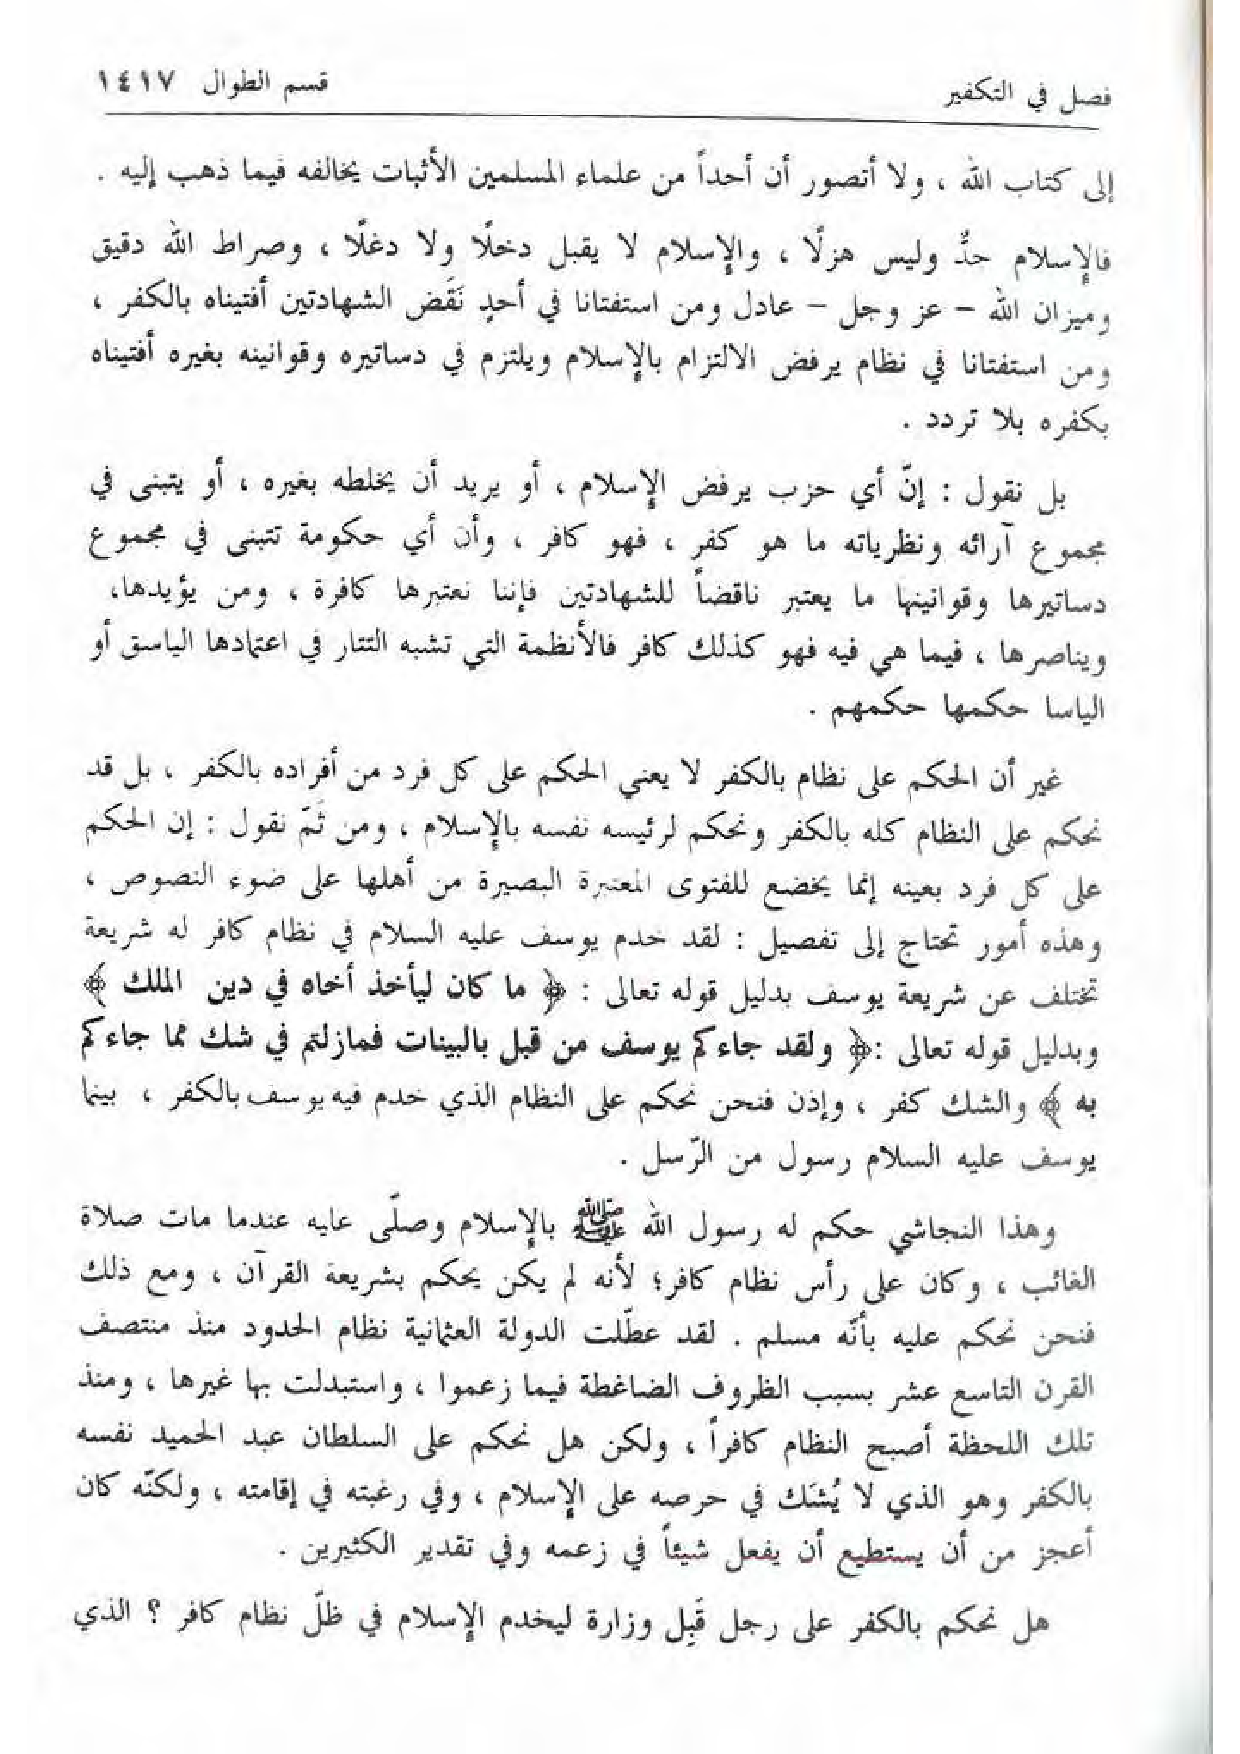 فصل في التكفير
قسم الطوال ١٤١٧
إلى كتاب الله ، ولا أتصور أن أحداً من علماء المسلمين الأثبات يخالفه فيما ذهب إليه .
فالإسلام جدٌّ وليس هزلًا ، والإسلام لا يقبل دخلًا ولا دغلًا ، وصراط الله دقيق
وميزان الله – عز وجل – عادل ومن استفتانا في أحدٍ نَقَض الشهادتين أفتيناه بالكفر ،
ومن استفتانا في نظام يرفض الالتزام بالإسلام ويلتزم في دساتيره وقوانينه بغيره أفتيناه
بكفره بلا تردد .
بل نقول : إنّ أي حزب يرفض الإسلام ، أو يريد أن يخلطه بغيره ، أو يتبنى في
مجموع آرائه ونظرياته ما هو كفر ، فهو كافر ، وأن أي حكومة تتبنى في مجموع
دساتيرها وقوانينها ما يعتبر ناقضاً للشهادتين فإننا نعتبرها كافرة ، ومن يؤيدها،
ويناصرها ، فيما هي فيه فهو كذلك كافر فالأنظمة التي تشبه التتار في اعتمادها الياسق أو
الياسا حكمها حكمهم .
غير أن الحكم على نظام بالكفر لا يعني الحكم على كل فرد من أفراده بالكفر ، بل قد
نحكم على النظام كله بالكفر ونحكم لرئيسه نفسه بالإسلام ، ومن ثَمّ نقول : إن الحكم
على كل فرد بعينه إنما يخضع للفتوى المعتبرة البصيرة من أهلها على ضوء النصوص ،
وهذه أمور تحتاج إلى تفصيل : لقد خدم يوسف عليه السلام في نظام كافر له شريعة
تختلف عن شريعة يوسف بدليل قوله تعالى : ﴿ ما كان ليأخذ أخاه في دين الملك ﴾
وبدليل قوله تعالى :﴿ ولقد جاءكم يوسف من قبل بالبينات فمازلتم في شك مما جاءكم
به ﴾ والشك كفر ، وإذن فنحن نحكم على النظام الذي خدم فيه يوسف بالكفر ، بينما
يوسف عليه السلام رسول من الرّسل .
وهذا النجاشي حكم له رسول الله ﷺ بالإسلام وصلّى عليه عندما مات صلاة
الغائب ، وكان على رأس نظام كافر؛ لأنه لم يكن يحكم بشريعة القرآن ، ومع ذلك
فنحن نحكم عليه بأنّه مسلم . لقد عطّلت الدولة العثمانية نظام الحدود منذ منتصف
القرن التاسع عشر بسبب الظروف الضاغطة فيما زعموا ، واستبدلت بها غيرها ، ومنذ
تلك اللحظة أصبح النظام كافراً ، ولكن هل نحكم على السلطان عبد الحميد نفسه
بالكفر وهو الذي لا يُشَك في حرصه على الإسلام ، وفي رغبته في إقامته ، ولكنّه كان
أعجز من أن يستطيع أن يفعل شيئاً في زعمه وفي تقدير الكثيرين .
هل نحكم بالكفر على رجل قَبِل وزارة ليخدم الإسلام في ظلّ نظام كافر ؟ الذي